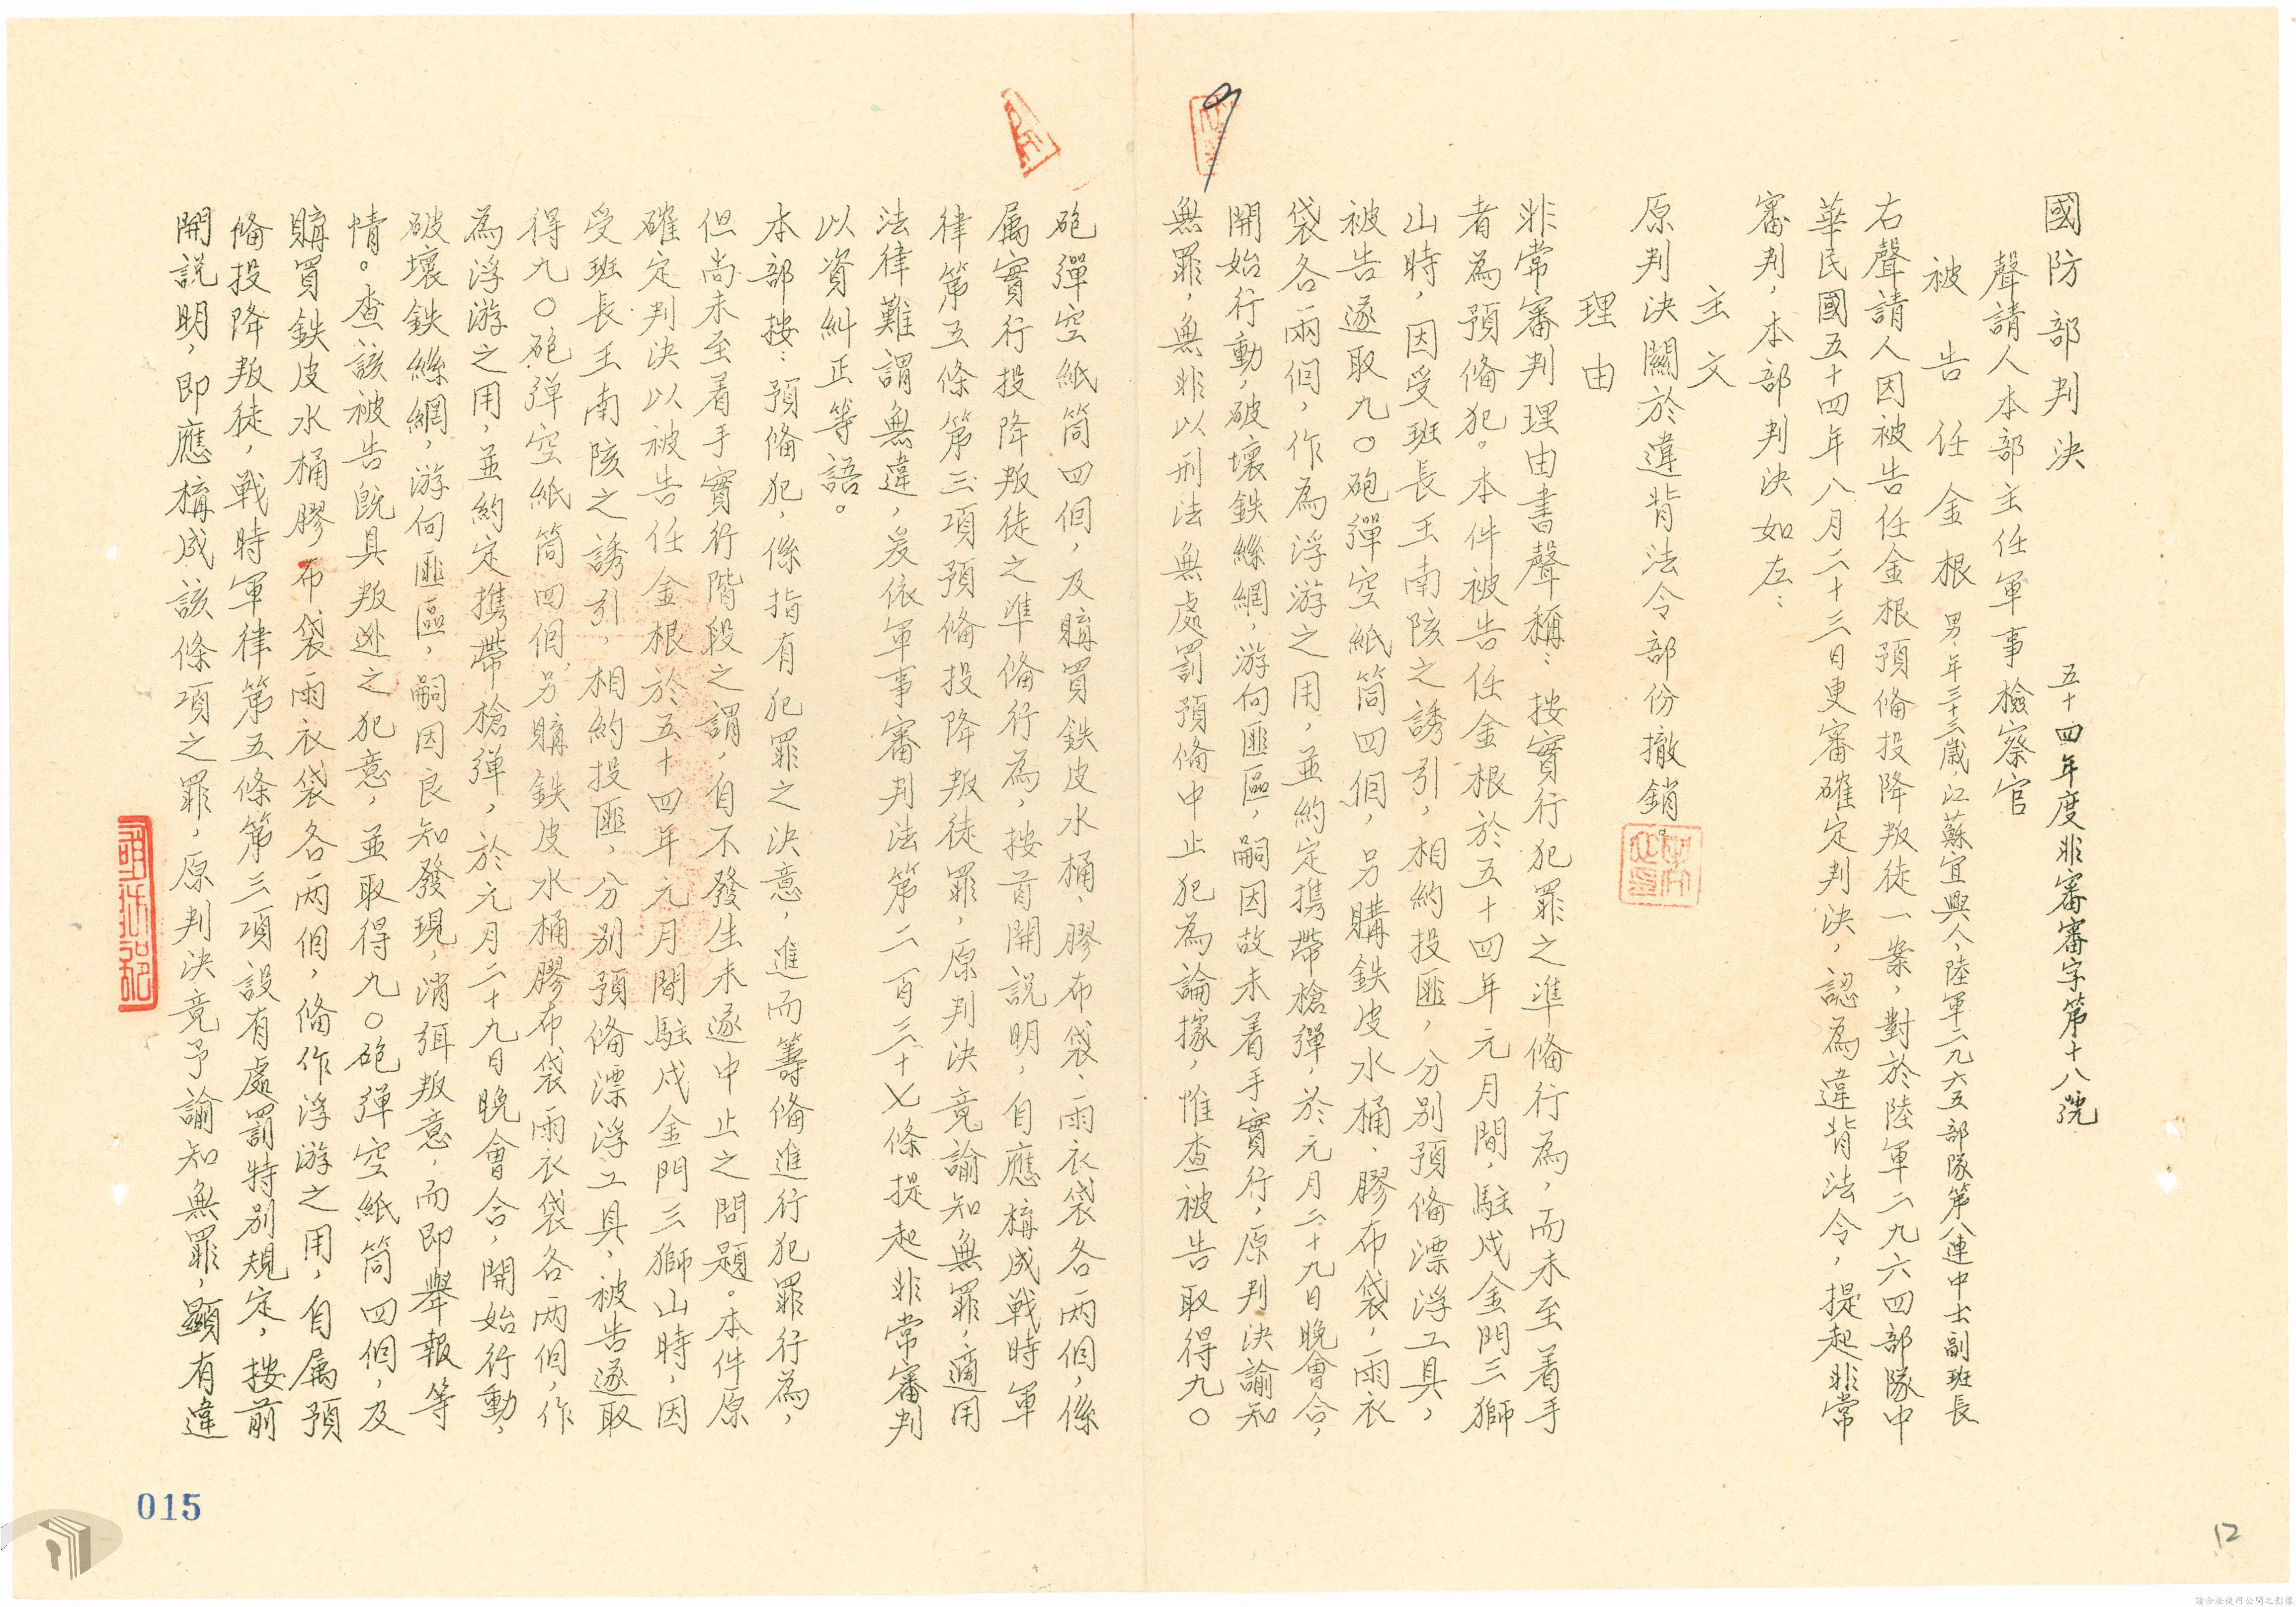 國防部判決
五十四年度非審審字第十八號
聲請人本部主任軍事檢察官
被告任金根男、年三十三歲、江蘇宜興人、陸軍二九六五部隊第八連中士副班長
右聲請人因被告任金根預備投降叛徒一案，對於陸軍二九六四部隊中
華民國五十四年八月二十三日更審確定判決，認為違背法令，提起非常
審判，本部判決如左：
主文
原判決關於違背法令部份撤銷。
理由
非常審判理由書聲稱：按實行犯罪之準備行為，而未至着手
者為預備犯。本件被告任金根於五十四年元月間，駐戍金門三獅
山時，因受班長王南陔之誘引，相約投匪，分別預備漂浮工具，
被告遂取九〇砲彈空紙筒四個，另購鉄皮水桶、膠布袋，雨衣
袋各兩個，作為浮游之用，並約定携帶槍彈，於元月二十九日晚會合，
開始行動，破壞鉄絲網，游向匪區，嗣因故未着手實行，原判決諭知
無罪，無非以刑法無處罰預備中止犯為論據，惟查被告取得九〇
砲彈空紙筒四個，及購買鉄皮水桶、膠布袋、雨衣袋各兩個，係
属實行投降叛徒之準備行為，按首開說明，自應構成戰時軍
律第五條第三項預備投降叛徒罪，原判決竟諭知無罪，適用
法律難謂無違，爰依軍事審判法第二百三十七條提起非常審判
以資糾正等語。
本部按：預備犯，係指有犯罪之決意，進而籌備進行犯罪行為，
但尚未至着手實行階段之謂，自不發生未遂中止之問題。本件原
確定判決以被告任金根於五十四年元月間駐戍金門三獅山時，因
受班長王南陔之誘引，相約投匪，分別預備漂浮工具，被告遂取
得九〇砲彈空紙筒四個，另購鉄皮水桶膠布袋雨衣袋各两個，作
為浮游之用，並約定携帶槍弹，於元月二十九日晚會合，開始行動，
破壞鉄絲網，游向匪區，嗣因良知發現，消弭叛意，而即舉報等
情。查該被告既具叛逃之犯意，並取得九〇砲彈空紙筒四個，及
購買鉄皮水桶膠布袋雨衣袋各两個，備作浮游之用，自属預
備投降叛徒，戰時軍律第五條第三項設有處罰特別規定，按前
開說明，即應構成該條項之罪，原判決竟予諭知無罪，顯有違
015
12
請合法使用公開之影像